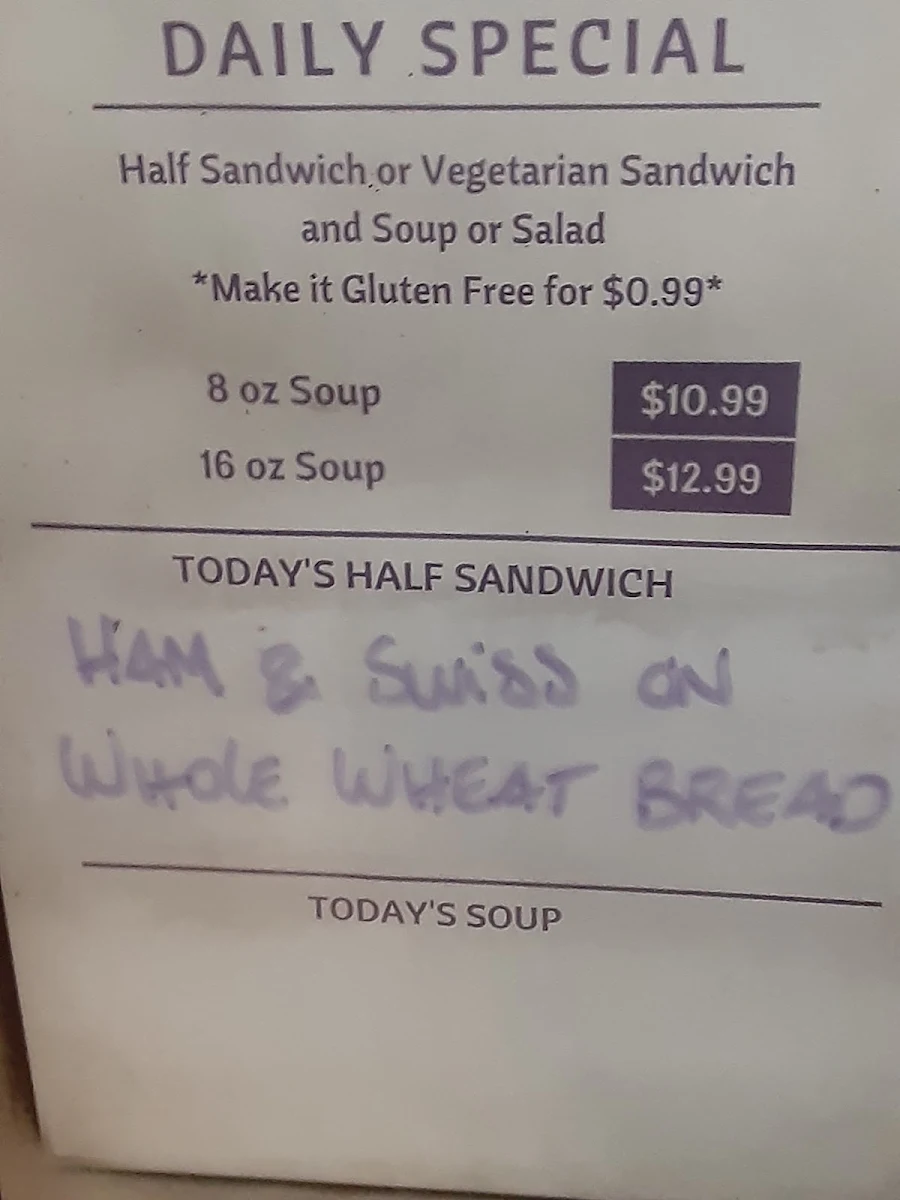 DAILY SPECIAL
Half Sandwich or Vegetarian Sandwich
and Soup or Salad
*Make it Gluten Free for $0.99*
8 oz Soup $10.99
16 oz Soup $12.99
TODAY'S HALF SANDWICH
HAM & SWISS ON
WHOLE WHEAT BREAD
TODAY'S SOUP